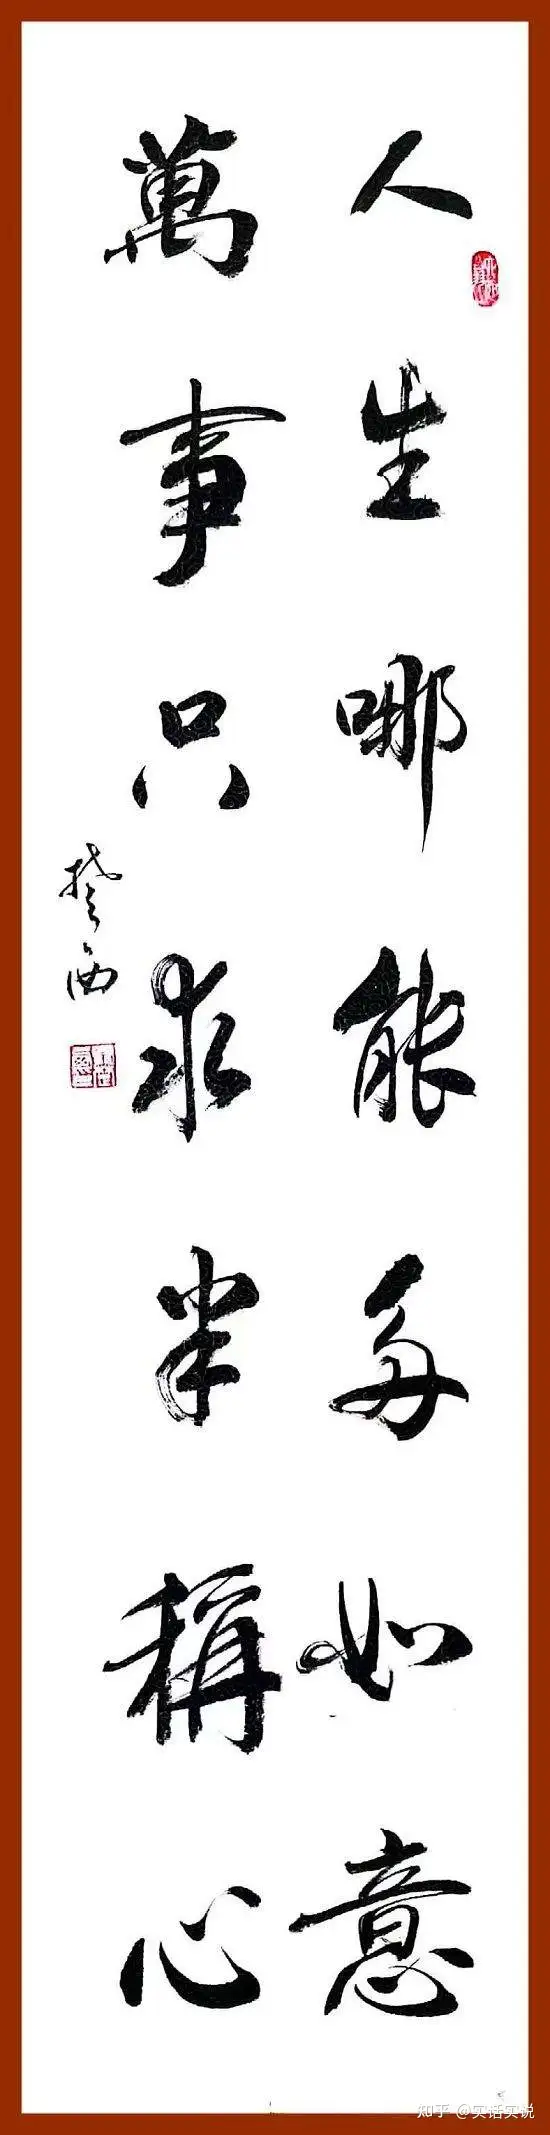 人生哪能多如意
萬事只求半稱心
楚西
知乎 @实话实说